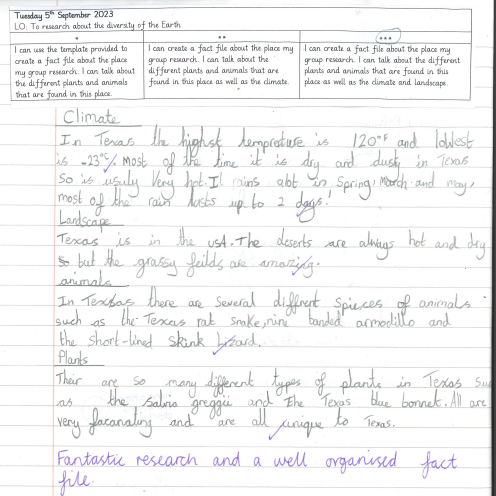 Tuesday 5th September 2023
LO: To research about the diversity of the Earth
*
I can use the template provided to
create a fact file about the place
my group research. I can talk about
the different plants and animals
that are found in this place.
**
I can create a fact file about the place my
group research. I can talk about the
different plants and animals that are
found in this place as well as the climate.
***
I can create a fact file about the place my
group research. I can talk about the different
plants and animals that are found in this
place as well as the climate and landscape.
Climate
In Texas the highst temprature is 120°F and lowest
is -23°C. Most of the time it is dry and dusty in Texas
So is usily Very hot. It rains abt in Spring, March and may,
most of the rain lasts up to 2 days!
Landscape
Texas is in the USA. The deserts are always hot and dry
but the grassy feilds are amazing.
animals
In Texas there are Several diffrent Spieces of animals
such as the Texas rat snake, nine banded armodillo and
the short-lined Skink Lizard.
Plants
Their are so many different types of plants in Texas suc
as the salvia greggii and the Texas blue bonnet. All are
very facanating and are all unique to Texas.
Fantastic research and a well organised fact
file.